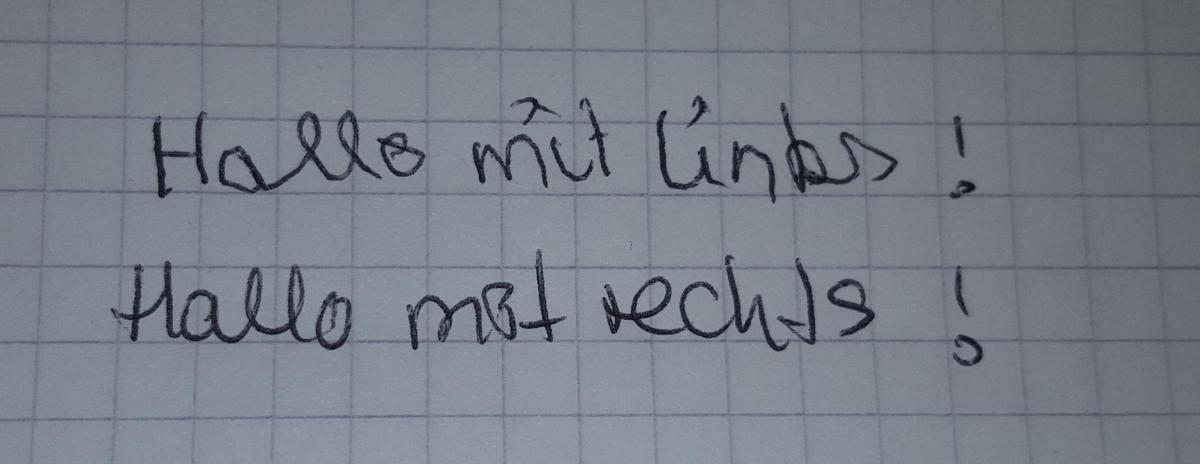 Hallo mit links!
Hallo mit rechts!